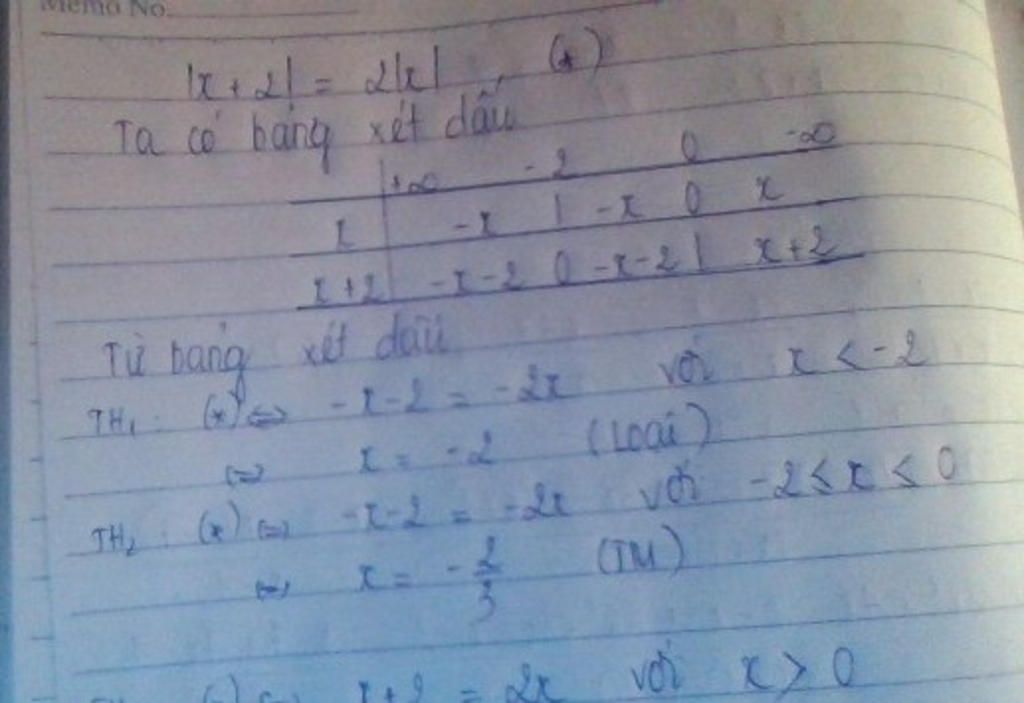 Memo No.
|x + 2| = 2|x| , (*)
Ta có bảng xét dấu
+∞ -2 0 -∞
x -x | -x 0 x
x+2 -x-2 0 -x-2 | x+2
Từ bảng xét dấu
TH₁ : (*) ⇔ -x-2 = -2x với x < -2
⇔ x = -2 (Loại)
TH₂ : (*) ⇔ -x-2 = -2x với -2 ≤ x ≤ 0
⇔ x = -2/3 (TM)
⇔ x+2 = 2x với x > 0